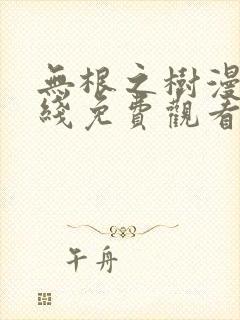 無根之樹漫
綫免費觀看
午舟